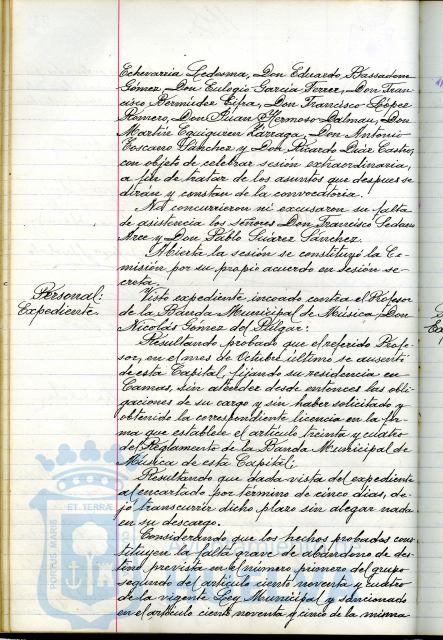 Echevarria Ledesma, Don Eduardo Bassadone
Gómez, Don Eulogio García Ferrer, Don Fran-
cisco Bermúdez Cifra, Don Francisco López
Romero, Don Juan Hermoso Dalmau, Don
Martín Eguiguren Lázaga, Don Antonio
Toscano Sánchez y Don Ricardo Díaz Castro,
con objeto de celebrar sesión extraordinaria,
a fin de tratar de los asuntos que despues se
dirán y constan de la convocatoria.
No concurrieron ni excusaron su falta
de asistencia los señores Don Francisco
Arce y Don Pablo Suárez Sánchez.
Abierta la sesión se constituyó la Co-
misión por su propio acuerdo en sesión se-
creta.
Personal:
Expediente.
Visto expediente incoado contra el Profesor
de la Banda Municipal de Música, Don
Nicolás Gómez del Pulgar:
Resultando probado que el referido Profe-
sor, en el mes de Octubre último se ausentó
de esta Capital, fijando su residencia en
Camas, sin atender desde entonces las obli-
gaciones de su cargo y sin haber solicitado y
obtenido la correspondiente licencia en la for-
ma que establece el artículo treinta y cuatro
del Reglamento de la Banda Municipal de
Música de esta Capital:
Resultando que dada vista del expediente
al encartado por término de cinco días, de-
jó transcurrir dicho plazo sin alegar nada
en su descargo.
Considerando que los hechos probados cons-
tituyen la falta grave de abandono de des-
tino prevista en el número primero del grupo
segundo del artículo ciento noventa y cuatro
de la vigente Ley Municipal y sancionada
en el artículo ciento noventa y cinco de la misma
PORTUS MARIS
ET TERRÆ